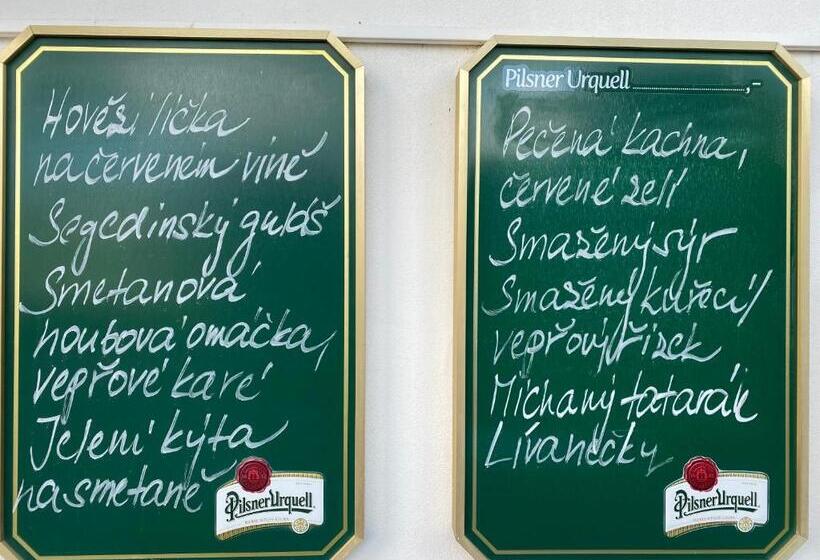 Hovězí líčka
na červeném víně
Segedinský guláš
Smetanová
houbová omáčka,
vepřové karé
Jelení kýta
na smetaně
Pilsner Urquell
Pilsner Urquell
Pečená kachna,
červené zelí
Smažený sýr
Smažený kuřecí/
vepřový řízek
Míchaný tatarák
Lívanečky
Pilsner Urquell